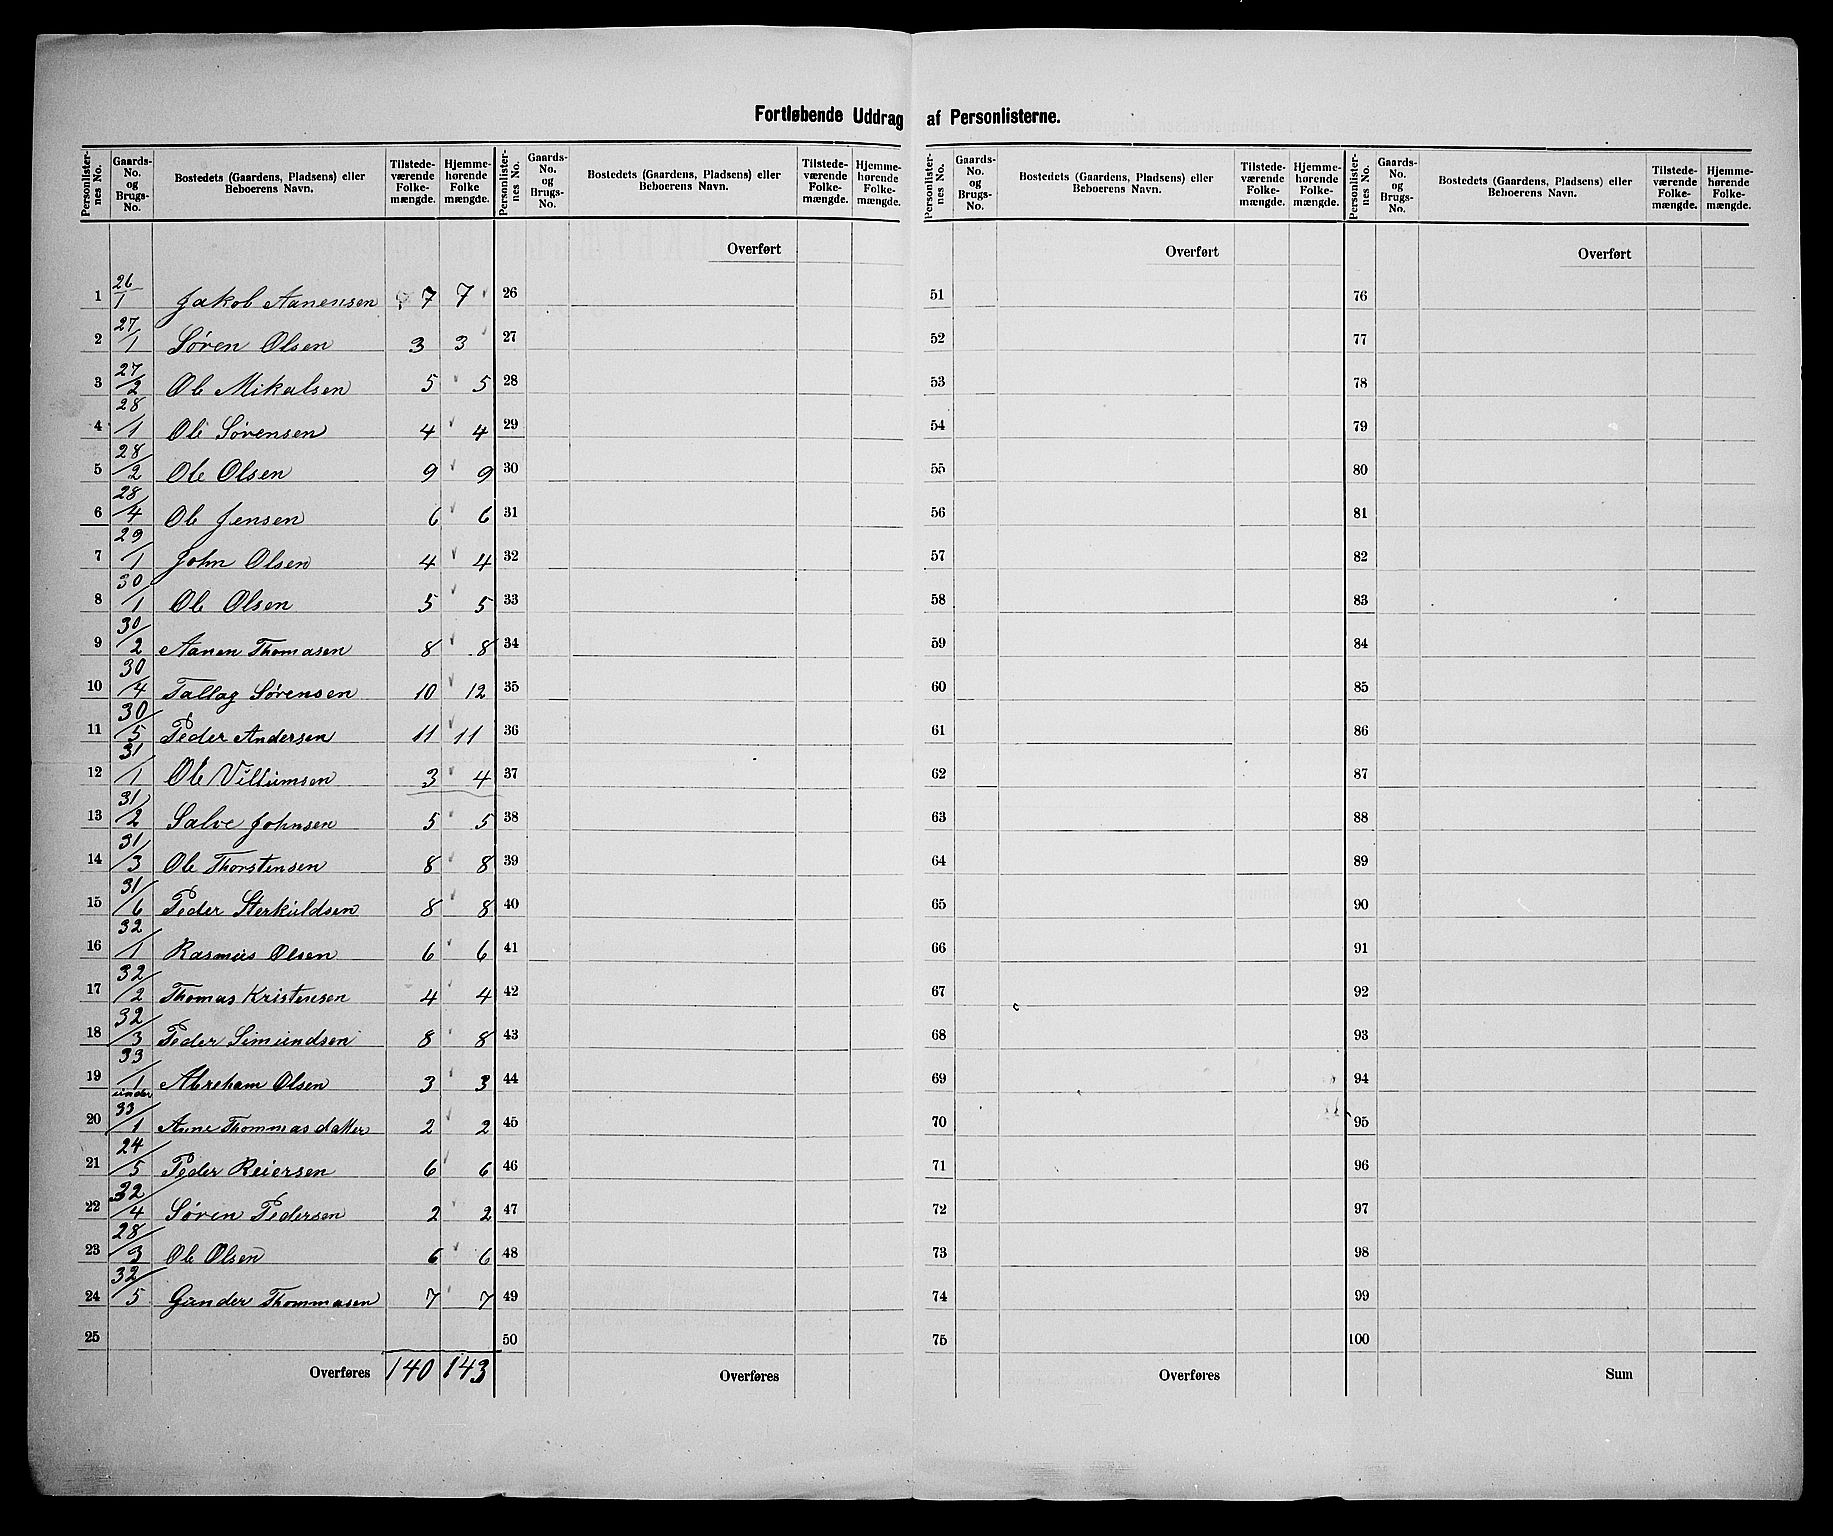 Fortløbende Uddrag af Personlisterne.
Personlister-nes No. | Gaards-No. og Brugs-No. | Bostedets (Gaardens, Pladsens) eller Beboerens Navn. | Tilstede-værende Folke-mængde. | Hjemme-hørende Folke mængde.
1 26/1 Jakob Aanensen 7 7
2 27/1 Søren Olsen 3 3
3 27/2 Ole Mikalsen 5 5
4 28/1 Ole Sørensen 4 4
5 28/2 Ole Olsen 9 9
6 28/4 Ole Jensen 6 6
7 29/1 John Olsen 4 4
8 30/1 Ole Olsen 5 5
9 30/2 Aanen Thomasen 8 8
10 30/4 Tallag Sørensen 10 12
11 30/5 Peder Andersen 11 11
12 31/1 Ole Villumsen 3 4
13 31/2 Salve Johnsen 5 5
14 31/3 Ole Thorstensen 8 8
15 31/6 Peder Sterkuldsen 8 8
16 32/1 Rasmus Olsen 6 6
17 32/2 Thomas Kristensen 4 4
18 32/3 Peder Simundsen 8 8
19 33/1 Abreham Olsen 3 3
20 under 33/1 Anne Thommasdatter 2 2
21 24/5 Peder Reiersen 6 6
22 32/4 Søren Pedersen 2 2
23 28/3 Ole Olsen 6 6
24 32/5 Gunder Thommasen 7 7
25
Overføres 140 143
Personlister-nes No. | Gaards-No. og Brugs-No. | Bostedets (Gaardens, Pladsens) eller Beboerens Navn. | Tilstede-værende Folke-mængde. | Hjemme-hørende Folke-mængde.
Overført
26
27
28
29
30
31
32
33
34
35
36
37
38
39
40
41
42
43
44
45
46
47
48
49
50
Overføres
Personlister-nes No. | Gaards-No. og Brugs-No. | Bostedets (Gaardens, Pladsens) eller Beboerens Navn. | Tilstede-værende Folke-mængde. | Hjemme-hørende Folke-mængde.
Overført
51
52
53
54
55
56
57
58
59
60
61
62
63
64
65
66
67
68
69
70
71
72
73
74
75
Overføres
Personlister-nes No. | Gaards-No. og Brugs-No. | Bostedets (Gaardens, Pladsens) eller Beboerens Navn. | Tilstede-værende Folke-mængde. | Hjemme-hørende Folke-mængde.
Overført
76
77
78
79
80
81
82
83
84
85
86
87
88
89
90
91
92
93
94
95
96
97
98
99
100
Sum